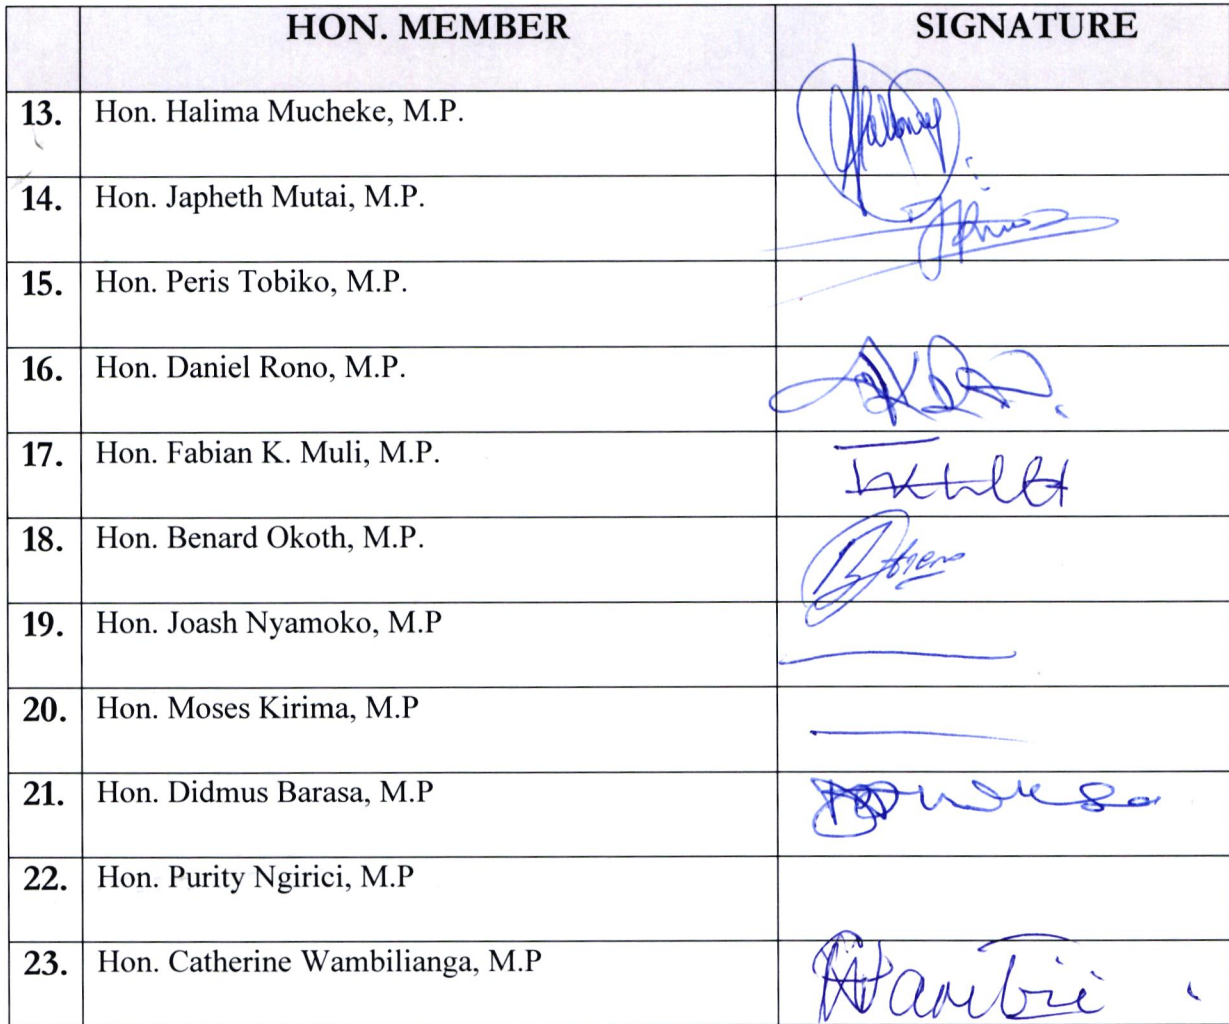 HON. MEMBER SIGNATURE
13. Hon. Halima Mucheke, M.P.
14. Hon. Japheth Mutai, M.P.
15. Hon. Peris Tobiko, M.P.
16. Hon. Daniel Rono, M.P.
17. Hon. Fabian K. Muli, M.P.
18. Hon. Benard Okoth, M.P.
19. Hon. Joash Nyamoko, M.P
20. Hon. Moses Kirima, M.P
21. Hon. Didmus Barasa, M.P
22. Hon. Purity Ngirici, M.P
23. Hon. Catherine Wambilianga, M.P